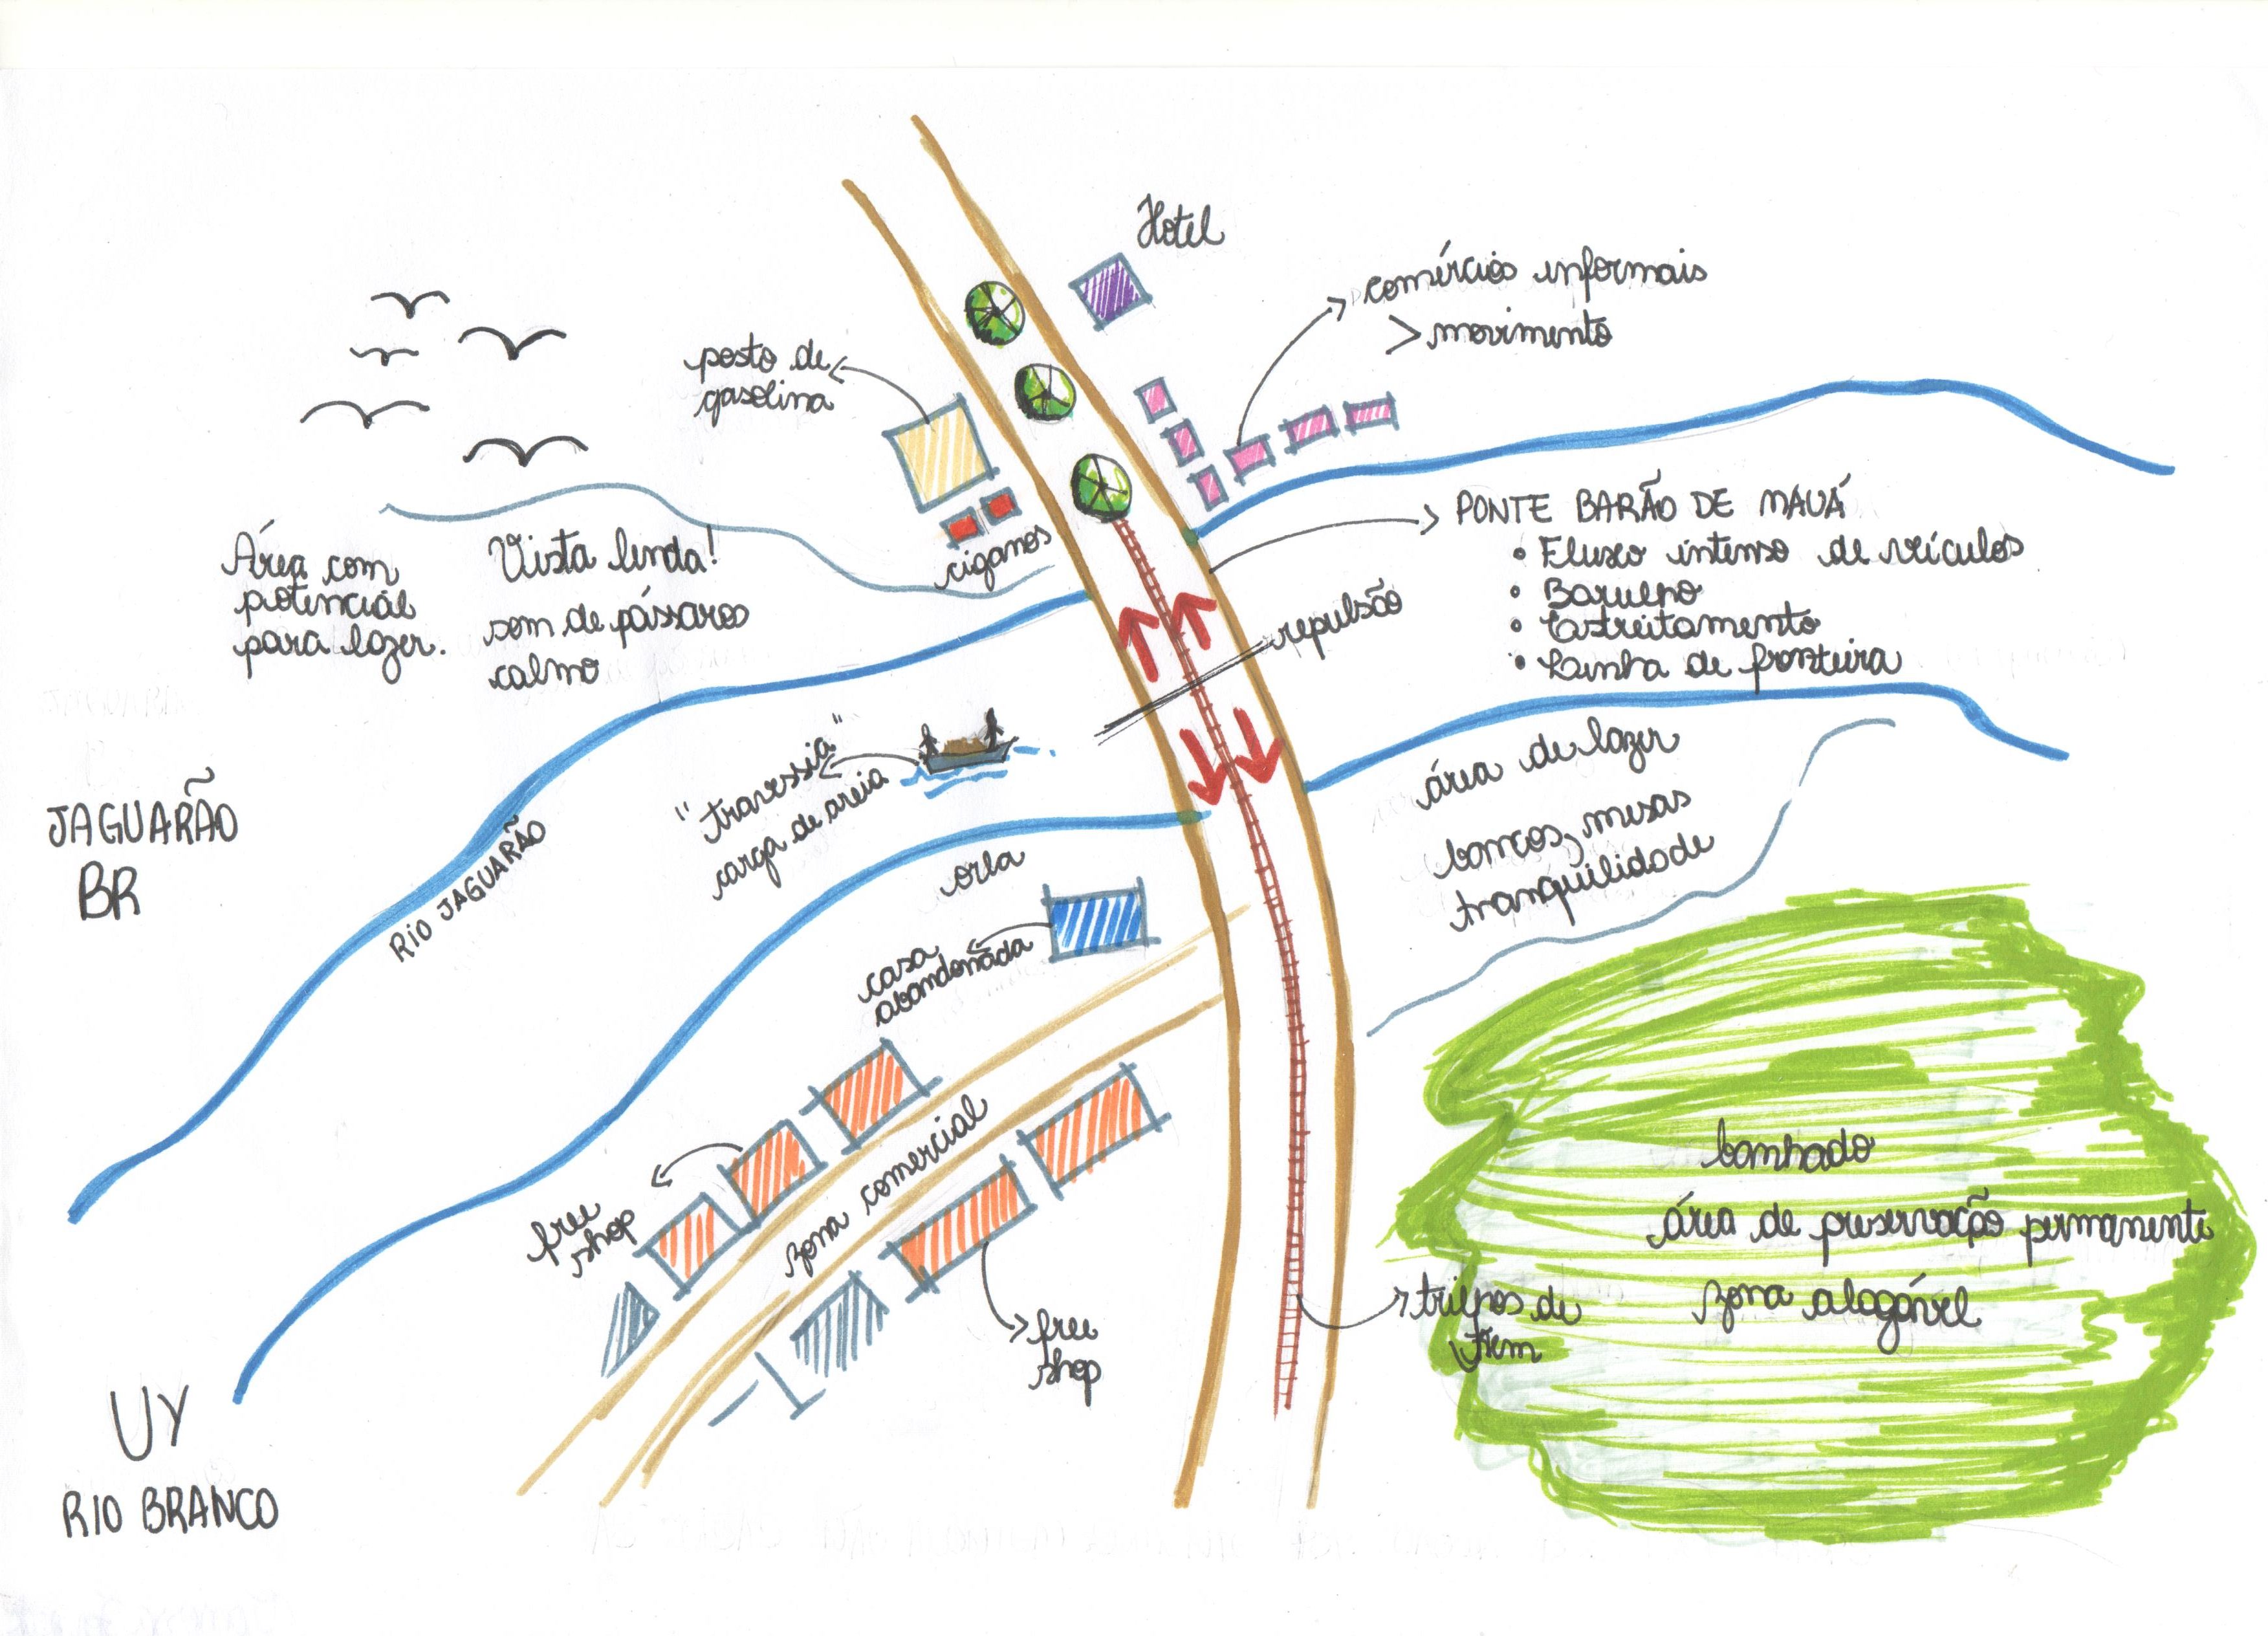 Hotel
comércios informais
> movimento
posto de
gasolina
ciganos
Área com
potencial
para lazer.
Vista linda!
som de pássaros
calmo
PONTE BARÃO DE MAUÁ
• Fluxo intenso de veículos
• Barulho
• Estreitamento
• Linha de fronteira
repulsão
"travessia"
carga de areia
área de lazer
bancos, mesas
tranquilidade
JAGUARÃO
BR
RIO JAGUARÃO
orla
casa
abandonada
zona comercial
free
shop
free
shop
banhado
área de preservação permanente
zona alagável
trilhos de
trem
UY
RIO BRANCO